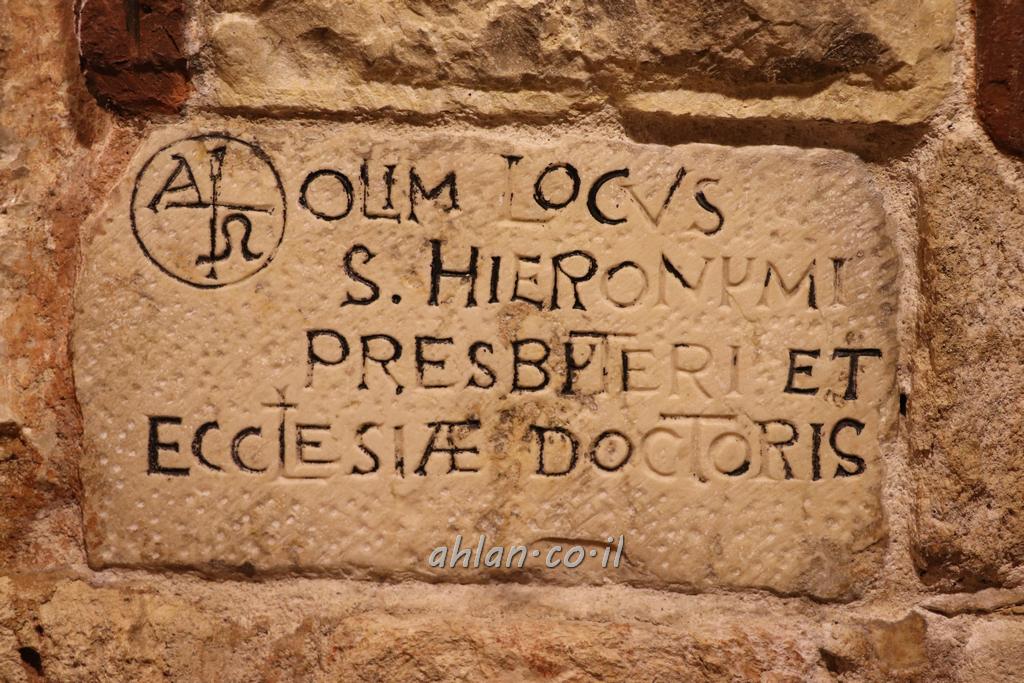 Α Ω OLIM LOCVS
S. HIERONYMI
PRESBYTERI ET
ECCLESIÆ DOCTORIS
ahlan·co·il